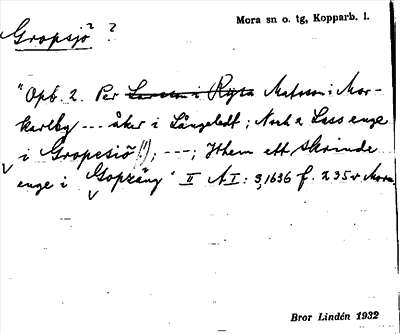 Mora sn o. tg, Kopparb. l.
Gropsjö? ?
"Opb. 2. Per Larsson i Rysa Matsson i Mor-
karlby --- åker i Långeledt; Noch 2 Lass enge
i Gropesiö (!); ---; Ithem ett skrinde
enge i Gopzäng" II A I: 3, 1636 f. 235 v Mora.
Bror Lindén 1932